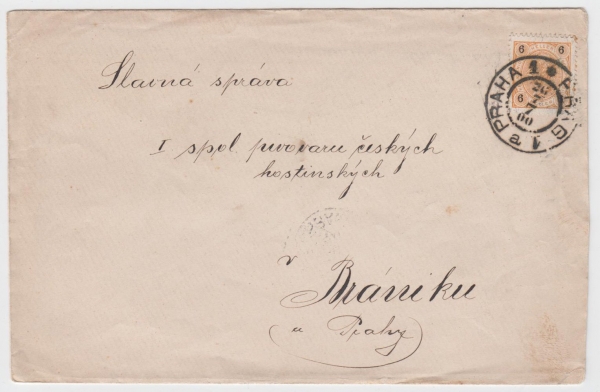 6 6
6
PRAHA 1 PRAG 1 a
00
Slavná správa
I spol. pivovaru českých
hostinských
v
Bráníku
(u Prahy)